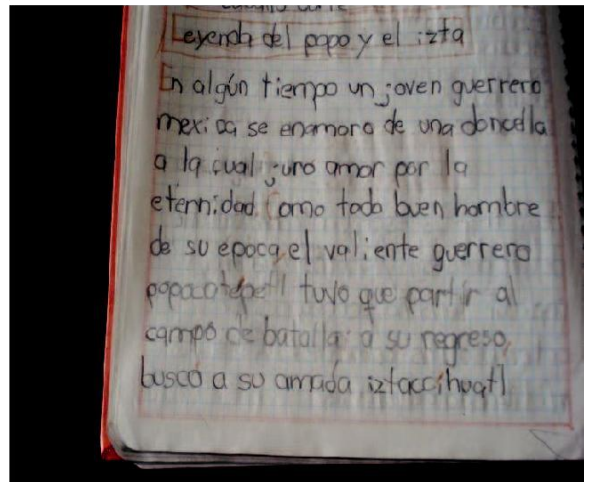 Leyenda del popo y el izta
En algún tiempo un joven guerrero
mexica se enamoro de una doncella
a la cual juro amor por la
eternidad. Como todo buen hombre
de su epoca, el valiente guerrero
popocatépetl tuvo que partir al
campo de batalla a su regreso,
buscó a su amada iztaccihuatl